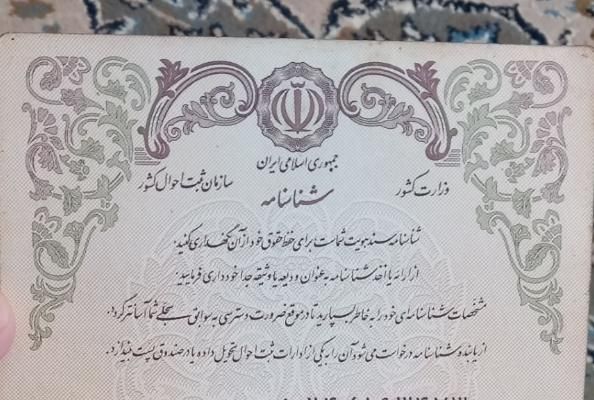 جمهوری اسلامی ایران
وزارت کشور
سازمان ثبت احوال کشور
شناسنامه
شناسنامه سند هویت شماست برای حفظ حقوق خود از آن نگهداری کنید.
از ارائه یا اخذ شناسنامه به عنوان ودیعه یا وثیقه جداً خودداری فرمایید.
مشخصات شناسنامه‌ای خود را به خاطر بسپارید تا در موقع ضرورت دسترسی به سوابق سجلی شما آسانتر گردد.
از یابنده شناسنامه درخواست می‌شود آن را به یکی از ادارات ثبت احوال تحویل داده یا در صندوق پست بیندازد.